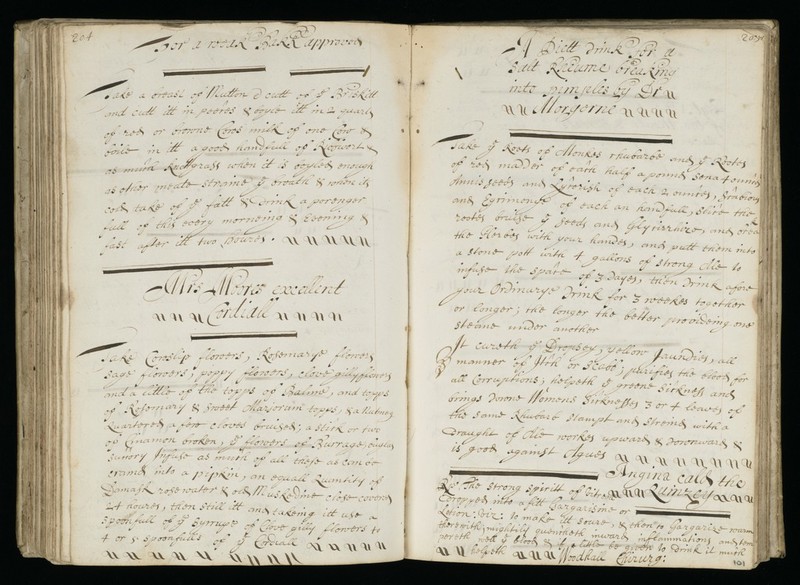 204
For a weak Back approved
Take a crase of Mutton & cutt of ye Briskitt
and cutt itt in peeces & boyle itt in 2 quarts
of red or browne Cows milk of one Cow &
boile in itt a good handfull of Ribwort &
as much knottgrass when it is boyled enough
as other meate straine ye broath & when its
cold take of ye fatt & drink a porenger
full of this every morneing & Evening &
fast after itt two hours.
Mrs Moores excellent
Cordiall
Take Cowslip flowers, Rosemarye flowers
sage flowers, poppy flowers, clove gillyflowers
and a little of the topps of Balme, and topps
of Rosemary & sweet Marjoram topps, & a Nutmeg
Quartered a few cloves bruised, a stick or two
of Cinamon broken, ye flowers of Burrage, bugles
Infuse as much of all these as can be
cramd into a pipkin, an equall Quantity of
Damask rosewater & old Muskedine close covered
24 hours, then still itt and takeing itt use a
spoonfull of ye Syrrupe of Clove gilly flowers to
4 or 5 spoonfulls of ye Cordiall
A Diett drink for a
Salt Rheume breaking
into pimples by Dr
Morgerne
Take ye Roots of Monkes rhubarbe and ye Rootes
of red madder of each half a pound, sena 4 ounces
Anniseeds and Lycorish of each 2 ounces, Scabious
and Egrimony of each an handfull, slice the
rootes bruise ye seeds and Glycirrhize, and break
the Herbes with your hands, and putt them into
a stone pott with 4 gallons of strong Ale to
infuse the space of 3 Dayes, then Drink as
your Ordinarye Drink for 3 weekes together
or longer, the longer the better provideing one
steane under another
It cureth ye Dropsey, yellow Jaundies, all
manner of Itch or Scabs, purifies the blood for
all Corruptions, helpeth ye greene sickness and
brings downe Womens Sicknesses 3 or 4 leaves of
the same Rhubarb stampt and streind with a
Draught of Ale workes upward & downward &
is good against Agues
Angina cald the
Rs The strong spiritt of
Dropped into a fitt Gargarisme or
Lotion, to make itt soure, & then to Gargarize warm
therewith; mightily quencheth inward inflammations and
ye blood & if a little be given to drink it much
helpeth Woodhall Chirurg:
101